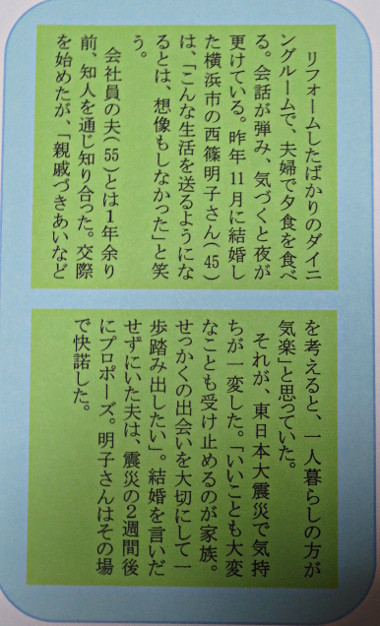 リフォームしたばかりのダイニ
ングルームで、夫婦で夕食を食べ
る。会話が弾み、気づくと夜が
更けている。昨年11月に結婚し
た横浜市の西篠明子さん(45)
は、「こんな生活を送るようにな
るとは、想像もしなかった」と笑
う。
会社員の夫(55)とは1年余り
前、知人を通じ知り合った。交際
を始めたが、「親戚づきあいなど
を考えると、一人暮らしの方が
気楽」と思っていた。
それが、東日本大震災で気持
ちが一変した。「いいことも大変
なことも受け止めるのが家族。
せっかくの出会いを大切にして一
歩踏み出したい」。結婚を言いだ
せずにいた夫は、震災の2週間後
にプロポーズ。明子さんはその場
で快諾した。